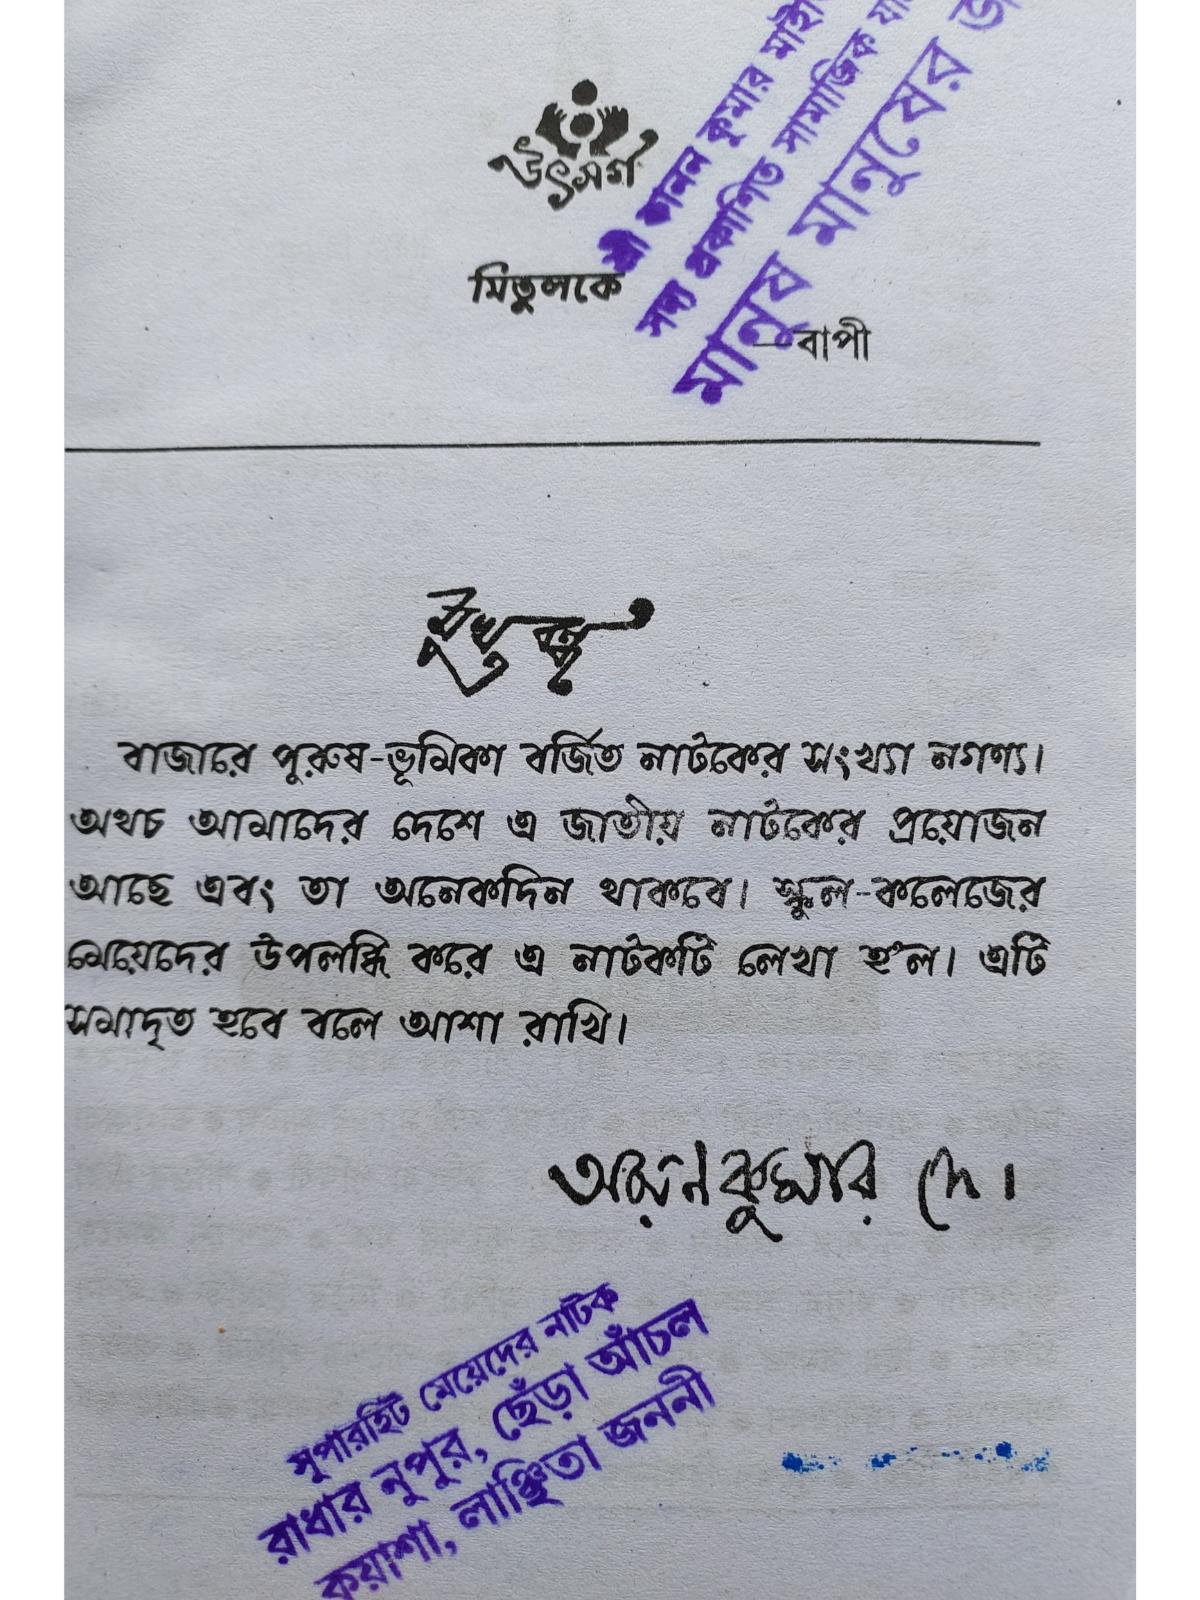 উৎসর্গ
মিতুলকে
—বাপী
শ্রী কানন কুমার মাই
সদ্য প্রকাশিত সামাজিক
মানুষ মানুষের
মুখবন্ধ
বাজারে পুরুষ-ভূমিকা বর্জিত নাটকের সংখ্যা নগণ্য।
অথচ আমাদের দেশে এ জাতীয় নাটকের প্রয়োজন
আছে এবং তা অনেকদিন থাকবে। স্কুল-কলেজের
মেয়েদের উপলব্ধি করে এ নাটকটি লেখা হ'ল। এটি
সমাদৃত হবে বলে আশা রাখি।
কুমার দে।
সুপারহিট মেয়েদের নাটক
রাধার নুপুর, ছেঁড়া আঁচল
কয়াশা, লাঞ্ছিতা জননী